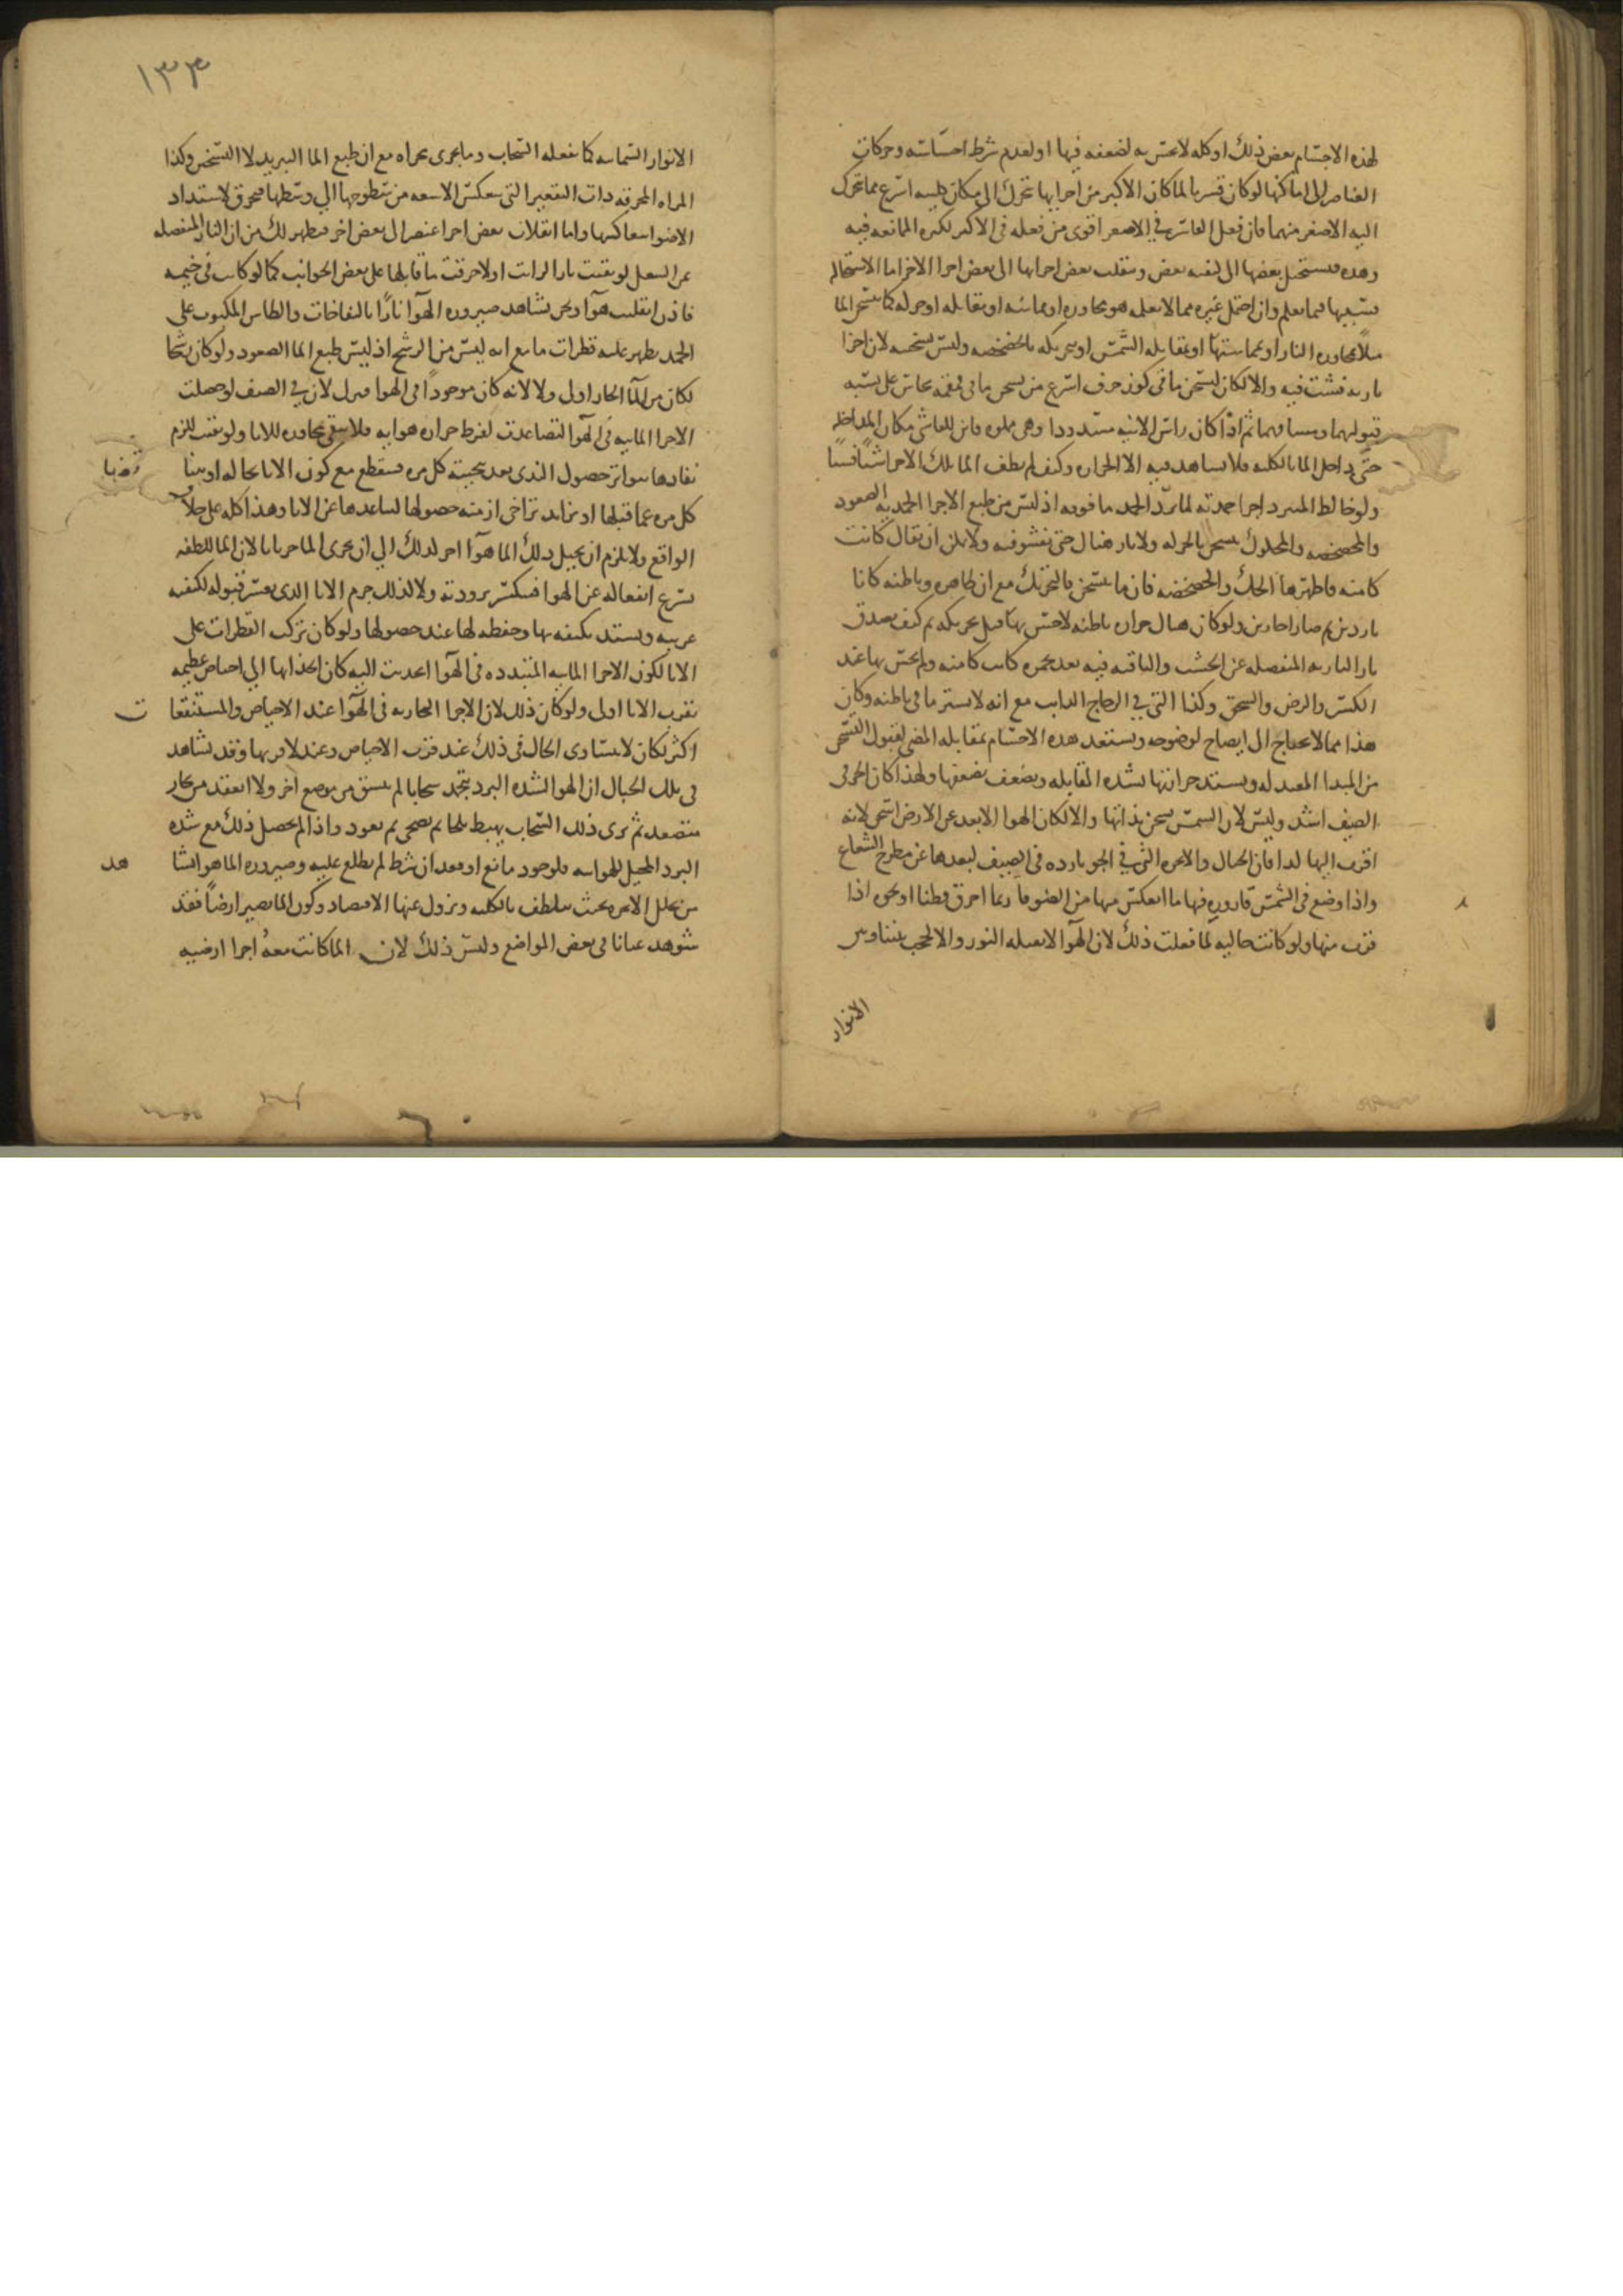 لهذه الاجسام بعض ذلك او كله لا يحس به لضعفه فيها او لعدم شرط احساسه وحركات
العناصر الى اماكنها لو كان قسريا لما كان الاكبر من اجزايها تحرك الى مكان طبيعه اسرع مما تحرك
اليه الاصغر منهما فان فعل القاسر في الاصغر اقوى من فعله في الاكبر لكثره الممانعه فيه
وهذه فيستحيل بعضها الى كيفيه بعض وينقلب بعض اجزايها الى بعض اجزا الاخر اما الاستحاله
فسببها فيما يعلم وان احتمل غيره مما لا نعلمه هو مجاوره او مماسه او مقابله او حركه كما يتسخن الما
مثلا بمجاوره النار او بمماستها او بمقابله الشمس او بتحريكه بالخضخضه وليس تسخنه لان اجزا
ناريه فشت فيه والا لكان تسخن ما في كوز خزف اسرع من تسخن ما في قمقمه نحاس على نسبه
قبولهما ومسامهما ثم اذا كان راس الانيه مسدودا وهي مملوه فاين للفاشي مكان المداخله
حتى يداخل الما بالكليه فلا يشاهد فيه الا الحراره وكيف لم يطف الما تلك الاجزا شيا فشيا
ولو خالط المبرد اجزا جمديه لما برد الجمد ما فوقه اذ ليس من طبع الاجزا الجمديه الصعود
والمخضخض والمحكوك يسخن بالحركه ولا نار هناك حتى تفشو فيه ولا يمكن ان يقال كانت
كامنه فاظهرها الحك والخضخضه فان ما يتسخن بالتحريك مع ان ظاهره وباطنه كانا
باردين ثم صارا حارين ولو كان هناك حراره باطنه لاحس بها قبل تحريكه ثم كيف يصدق
بان الناريه المنفصله عن الخشب والباقيه فيه بعد تجمره كانت كامنه ولم يحس بها عند
الكسر والرض والسحق وكذا التي في الزجاج الذايب مع انه لا يستر ما في باطنه وكان
هذا مما لا يحتاج الى ايضاح لوضوحه ويستعد هذه الاجسام بمقابله المضي لقبول التسخن
من المبدا المفيد له ويشتد حرارتها بشده المقابله ويضعف بضعفها ولهذا كان الحر في
الصيف اشد وليس لان الشمس تسخن بذاتها والا لكان الهوا الابعد عن الارض اسخن لانه
اقرب اليها كذا فان الجبال والابخره التي في الجو بارده في الصيف لبعدها عن مطرح الشعاع
واذا وضع في الشمس قاروره فيها ما انعكس منها من الضوء ما ربما احرق قطنا او نحوه اذا
قرب منها ولو كانت خاليه لما فعلت ذلك لان الهوا لا يقبله النور والا لحجب بيننا وبين
الانوار
١٣٣
الانوار السماييه كما يفعله السحاب وما يجري مجراه مع ان طبع الما التبريد لا التسخين وكذا
المراه المحرقه ذات التقعير التي ينعكس الاشعه من سطوحها الى وسطها فيحرق لاشتداد
الاضوا بتعاكسها واما انقلاب بعض اجزا عنصر الى بعض اخر فيظهر لك من ان النار المنفصله
عن الشعل لو بقيت نارا لرايت او لاحرقت ما قابلها على بعض الجوانب كما لو كانت في خيمه
فاذن انقلبت هوآ ونحن نشاهد صيروره الهوآ نارًا بالنفاخات والطاس المكبوب على
الجمد يظهر عليه قطرات ما مع انه ليس من الرشح اذ ليس طبع الما الصعود ولو كان رشحا
لكان من المآ الحار اولى ولا لانه كان موجودًا في الهوا فنزل لان في الصيف لو حصلت
الاجزا الماييه في الهوآ لتصاعدت لفرط حراره هوايه فلا يبقى مجاوره للانا ولو بقيت للزم
نفادها بتواتر حصول الندى بعد تنحيته كل مره فينقطع مع كون الانا بحاله او بينا
كل مره عما قبلها او تزايد تراخي ازمنه حصولها لتباعدها عن الانا وهذا كله على خلاف
الواقع ولا يلزم ان يحيل ذلك الما هوآ اخر كذلك الى ان يجري الما جريانا لان الما للطفه
يسرع انفعاله عن الهوا فينكسر برودته ولا كذلك جرم الانا الذي يعسر قبوله لكيفيه
غريبه ويشتد تكيفه بها وحفظه لها عند حصولها ولو كان تركب القطرات على
الانا لكون الاجزا الماييه المتبدده في الهوآ انجذبت اليه كان انجذابها الى احياض عظيمه
بقرب الانا اولى ولو كان ذلك لان الاجزا البخاريه في الهوآ عند الاحياض والمستنقعات
اكثر لكان لا يتساوى الحال في ذلك عند قرب الاحياض وعند لا قربها وقد نشاهد
في قلل الجبال ان الهوا لشده البرد يتجمد سحابا لم ينسق من موضع اخر ولا انعقد من بخار
متصعد ثم نرى ذلك السحاب يهبط ثلجا ثم يصحى ثم يعود واذا لم يحصل ذلك مع شده
البرد المحيل للهواييه فلوجود مانع او فقدان شرط لم يطلع عليه وصيروره الما هوا نشاهد
من تحلل الابخره بحيث يتلطف بالكليه ويزول عنها الاقتصاد وكون الما يصير ارضًا فقد
شوهد عيانا في بعض المواضع وليس ذلك لان الما كانت معه اجزا ارضيه